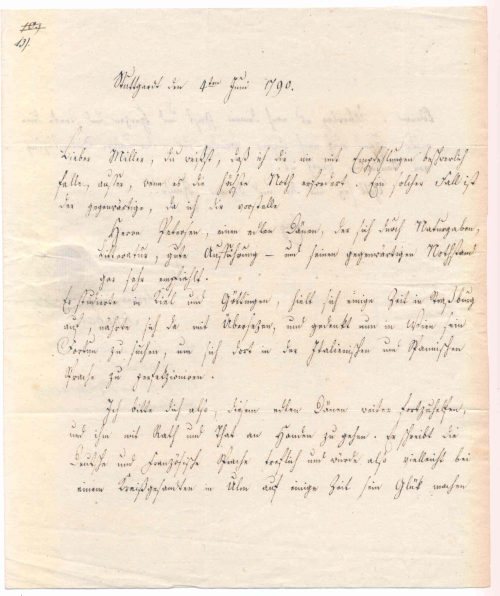 131.
Stuttgardt den 4ten Juni 1790.
Lieber Miller, du weißst, daß ich dir nie mit Empfehlungen beschwerlich
falle, außer, wenn es die höchste Noth erfordert. Ein solcher Fall ist
der gegenwärtige, da ich dir vorstelle
Herrn Petersen, einen edlen Dänen, der sich durch Naturgaben,
Litteratur, gute Aufführung – und seinen gegenwärtigen Nothstand
gar sehr empfiehlt.
Er studierte in Kiel und Göttingen, hielt sich einige Zeit in
auf, nährte sich da mit Übersetzen, und gedenkt nun in Wien sein
Fortun zu suchen, um sich dort in der Italienischen und Spanischen
Sprache zu perfekzionieren.
Ich bitte dich also, diesem edlen Dänen weiter fortzuhelfen,
und ihm mit Rath und That an Handen zu gehen. Er schreibt die
Deutsche und Französische Sprache treflich und würde also vielleicht bei
einem Kreißgesandten in Ulm auf einige Zeit sein Glük machen